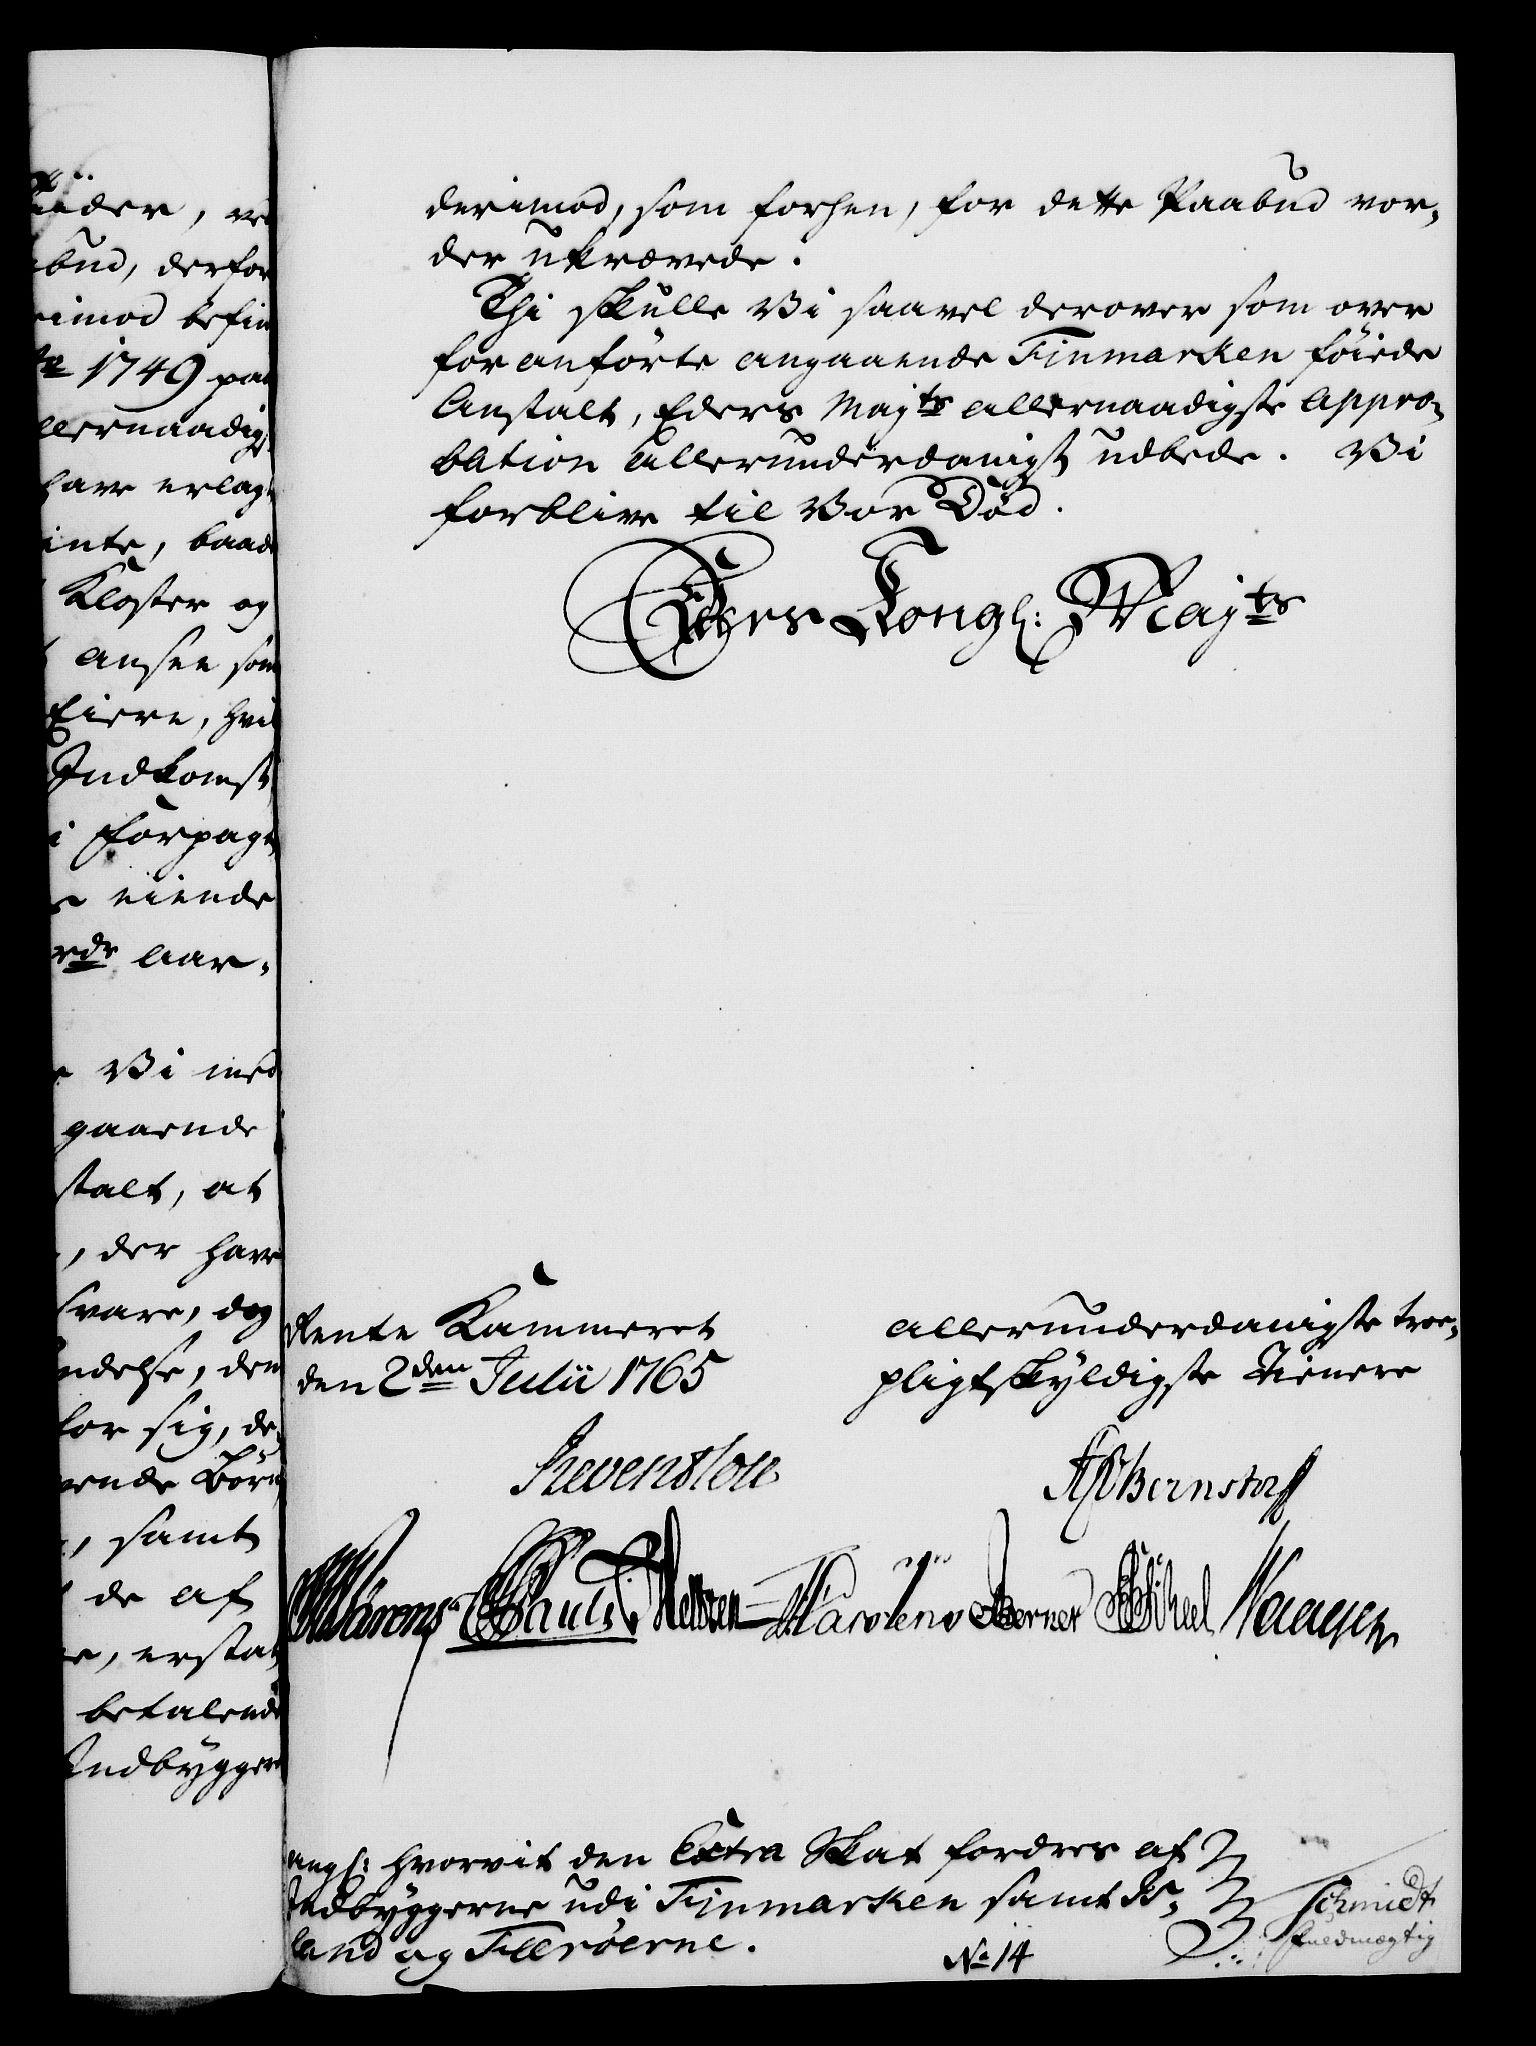 uder, ve
bud, derfor
rimod befin
1749 paa
llernaadig,
have erlag
inte, baade
Kloster og
ansee som
Eiere, hvis
Indkomst
i Forpagt
eiende
rde Aar,
Vi med
gaaende
stalt, at
, der have
svare, dog
ndelse, den
for sig, de
ende Börn
, samt
de af
e, erstat
betalende
Indbyggere
derimod, som forhen, for dette Paabud vor,
der ukrævede.
Thi skulle Vi saavel derover som over
foranförte angaaende Finmarken föiede
Anstalt, Eders Majts allernaadigste Appro,
bation allerunderdanigst udbede. Vi
forblive til Vor Död.
Eders Kongl: Majts
Rente Kammeret
den 2den Julii 1765
allerunderdanigste troe,
pligtskyldigste Tienere
Reventlow
Bernstorff
Berner
Waagen
angl: hvorvit den Extra Skat fordres af
Indbyggerne udi Finmarken samt Is,
land og Færöerne.
No 14
Schmidt
Fuldmægtig